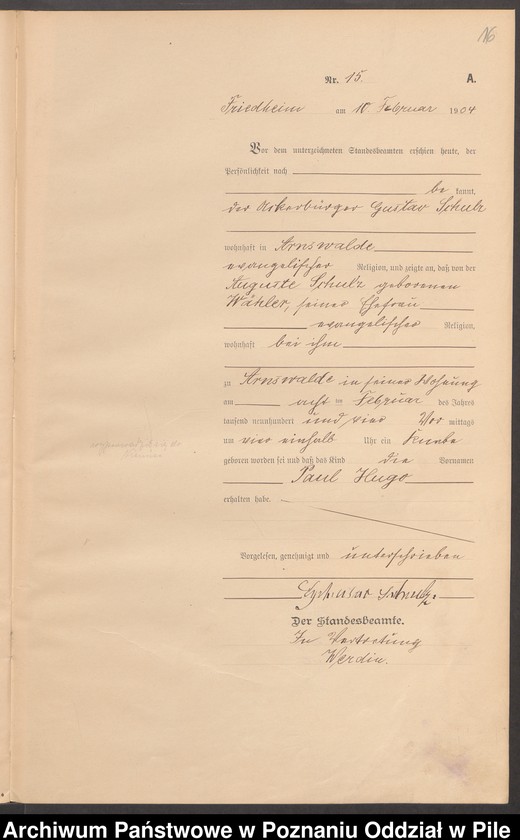 16
Nr. 15. A.
Friedheim am 10. Februar 1904
Vor dem unterzeichneten Standesbeamten erschien heute, der
Persönlichkeit nach
be kannt,
der Ackerbürger Gustav Schulz
wohnhaft in Arnswalde
evangelischer Religion, und zeigte an, daß von der
Auguste Schulz geborenen
Wähler, seiner Ehefrau
evangelischer Religion,
wohnhaft bei ihm
zu Arnswalde in seiner Wohnung
am acht ten Februar des Jahres
tausend neunhundert und vier Vor mittags
um vier einhalb Uhr ein Knabe
geboren worden sei und daß das Kind die Vornamen
Paul Hugo
erhalten habe.
Vorgelesen, genehmigt und unterschrieben
Schulz.
Der Standesbeamte.
In Vertretung
Werdin.
Archiwum Państwowe w Poznaniu Oddział w Pile